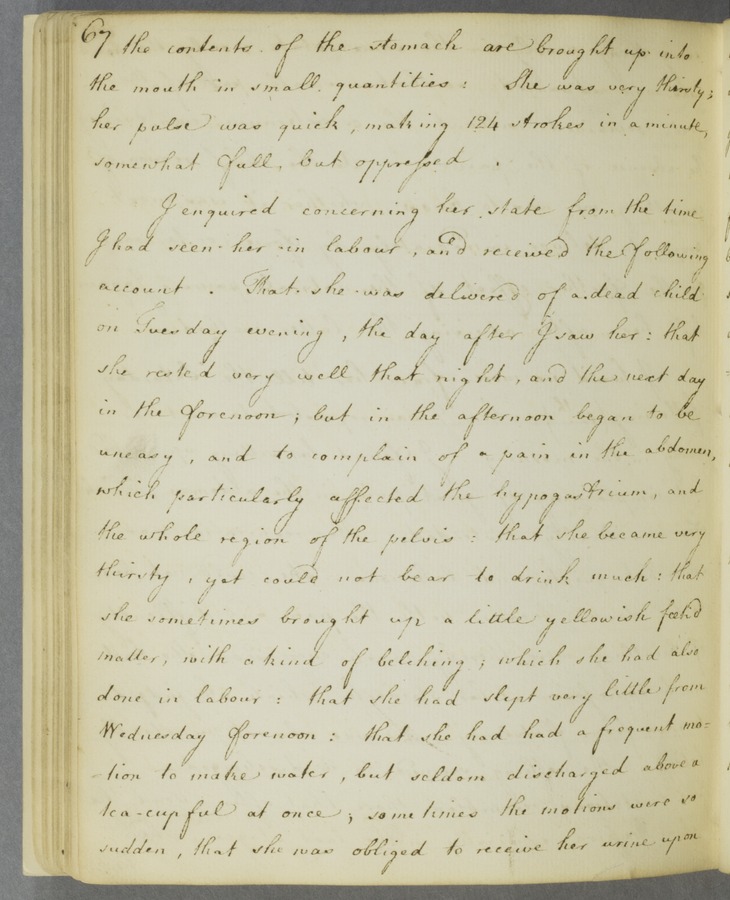 67
the contents of the stomach are brought up into
the mouth in small quantities: She was very thirsty;
her pulse was quick, making 124 strokes in a minute,
somewhat full, but oppressed.
I enquired concerning her state from the time
I had seen her in labour, and received the following
account. That she was delivered of a dead child
on Tuesday evening, the day after I saw her: that
she rested very well that night, and the next day
in the forenoon; but in the afternoon began to be
uneasy, and to complain of a pain in the abdomen,
which particularly affected the hypogastrium, and
the whole region of the pelvis: that she became very
thirsty, yet could not bear to drink much: that
she sometimes brought up a little yellowish foetid
matter, with a kind of belching; which she had also
done in labour: that she had slept very little from
Wednesday forenoon: that she had had a frequent mo=
tion to make water, but seldom discharged above a
tea-cupful at once; sometimes the motions were so
sudden, that she was obliged to receive her urine upon